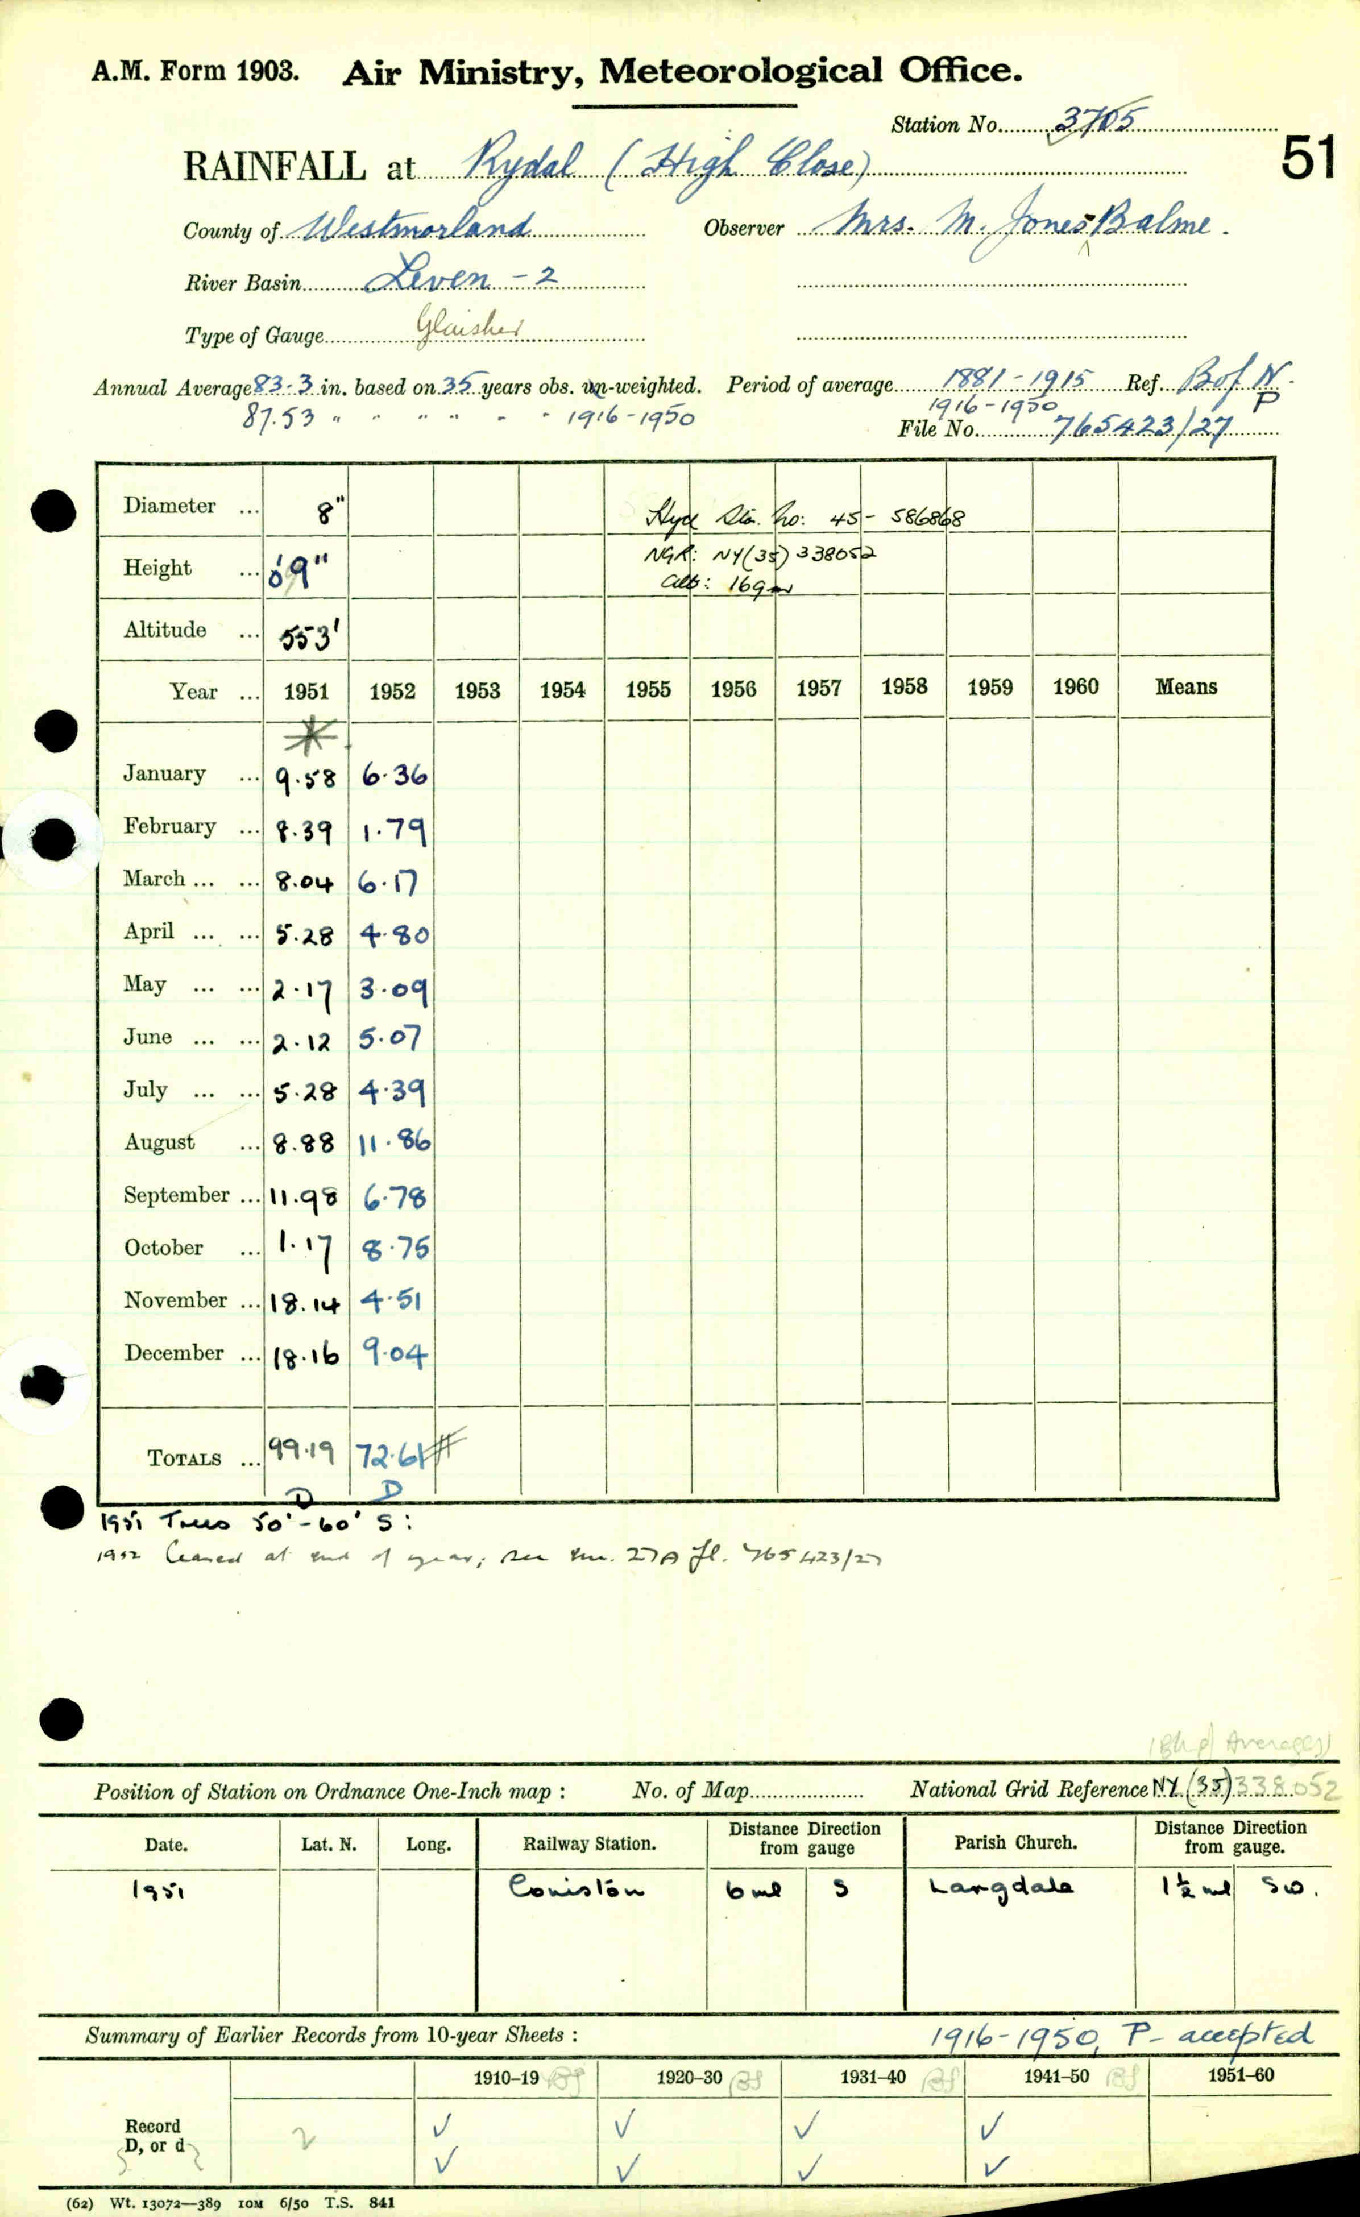 A.M. Form 1903. Air Ministry, Meteorological Office.
Station No. 3705
51
RAINFALL at Rydal (High Close)
County of Westmorland Observer Mrs. M. Jones-Balme.
River Basin Leven - 2
Type of Gauge Glaisher
Annual Average 83.3 in. based on 35 years obs. un-weighted. Period of average 1881-1915 Ref. B of N.
87.53 " " " " " " 1916-1950 1916-1950 P
File No. 765423/27
Diameter ... 8" Hyd Sta. No: 45- 586868
Height ... 0'9" NGR: NY(35) 338052
Alt: 169m
Altitude ... 553'
Year ... 1951 1952 1953 1954 1955 1956 1957 1958 1959 1960 Means
January ... 9.58 6.36
February ... 8.39 1.79
March ... ... 8.04 6.17
April ... ... 5.28 4.80
May ... ... 2.17 3.09
June ... ... 2.12 5.07
July ... ... 5.28 4.39
August ... 8.88 11.86
September ... 11.98 6.78
October ... 1.17 8.75
November ... 18.14 4.51
December ... 18.16 9.04
TOTALS ... 99.19 72.61
D D
1951 Trees 50'-60' S:
1952 Ceased at end of year; see 27A fl. 765423/27
Averages)
Position of Station on Ordnance One-Inch map : No. of Map National Grid Reference NY (35) 338052
Date. Lat. N. Long. Railway Station. Distance Direction from gauge Parish Church. Distance Direction from gauge.
1951 Coniston 6 ml S Langdale 1½ ml SW.
Summary of Earlier Records from 10-year Sheets : 1916-1950, P- accepted
1910–19 1920–30 1931–40 1941–50 1951–60
Record ✓ ✓ ✓ ✓
D, or d ✓ ✓ ✓ ✓
(62) Wt. 13072—389 10M 6/50 T.S. 841